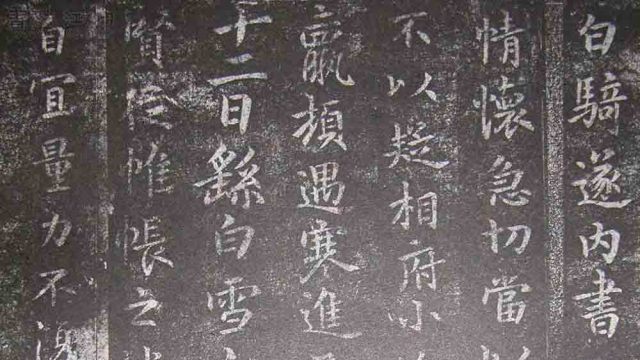 白騎遂內書
情懷急切當
不以疑相府小
羸頓遇寒進
十二日繇白雪
賢從帷帳之
自宜量力不復